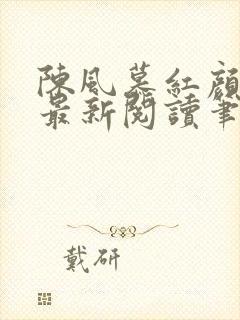 陳風慕紅顏
最新閱讀筆
戴研